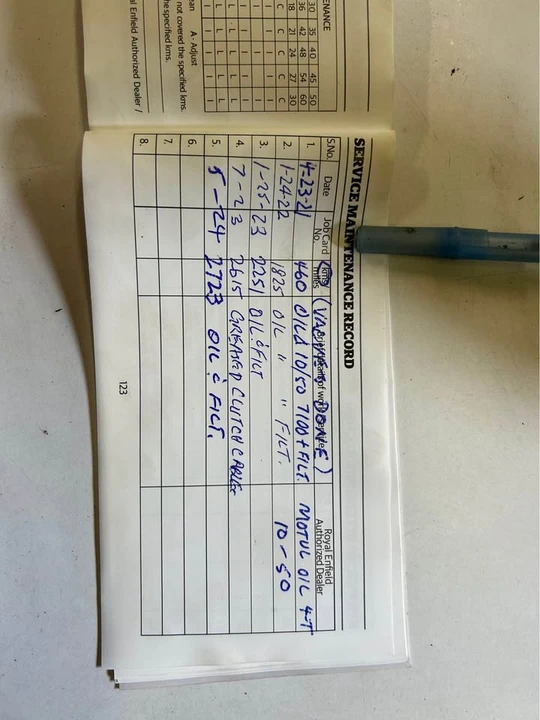 ENANCE
30 35 40 45 50
36 42 48 54 60
18 21 24 27 30
C C C C C
I I I I I
I I I I I
I I I I I
L L L L L
L L L L L
I I I I
ean A - Adjust
not covered the specified kms.
he specified kms.
al Enfield Authorized Dealer /
SERVICE MAINTENANCE RECORD
S.No. Date Job Card No. kms miles Royal Enfield Authorized Dealer
(VALVE DONE)
1. 4-23-21 460 OIL 10/50 7100 + FILT. MOTUL OIL 4-T
2. 1-24-22 1825 OIL " " FILT. 10-50
3. 1-25-23 2251 OIL & FILT
4. 7-23 2615 GREASED CLUTCH CABLE
5. 5-24 2723 OIL & FILT.
6.
7.
8.
123